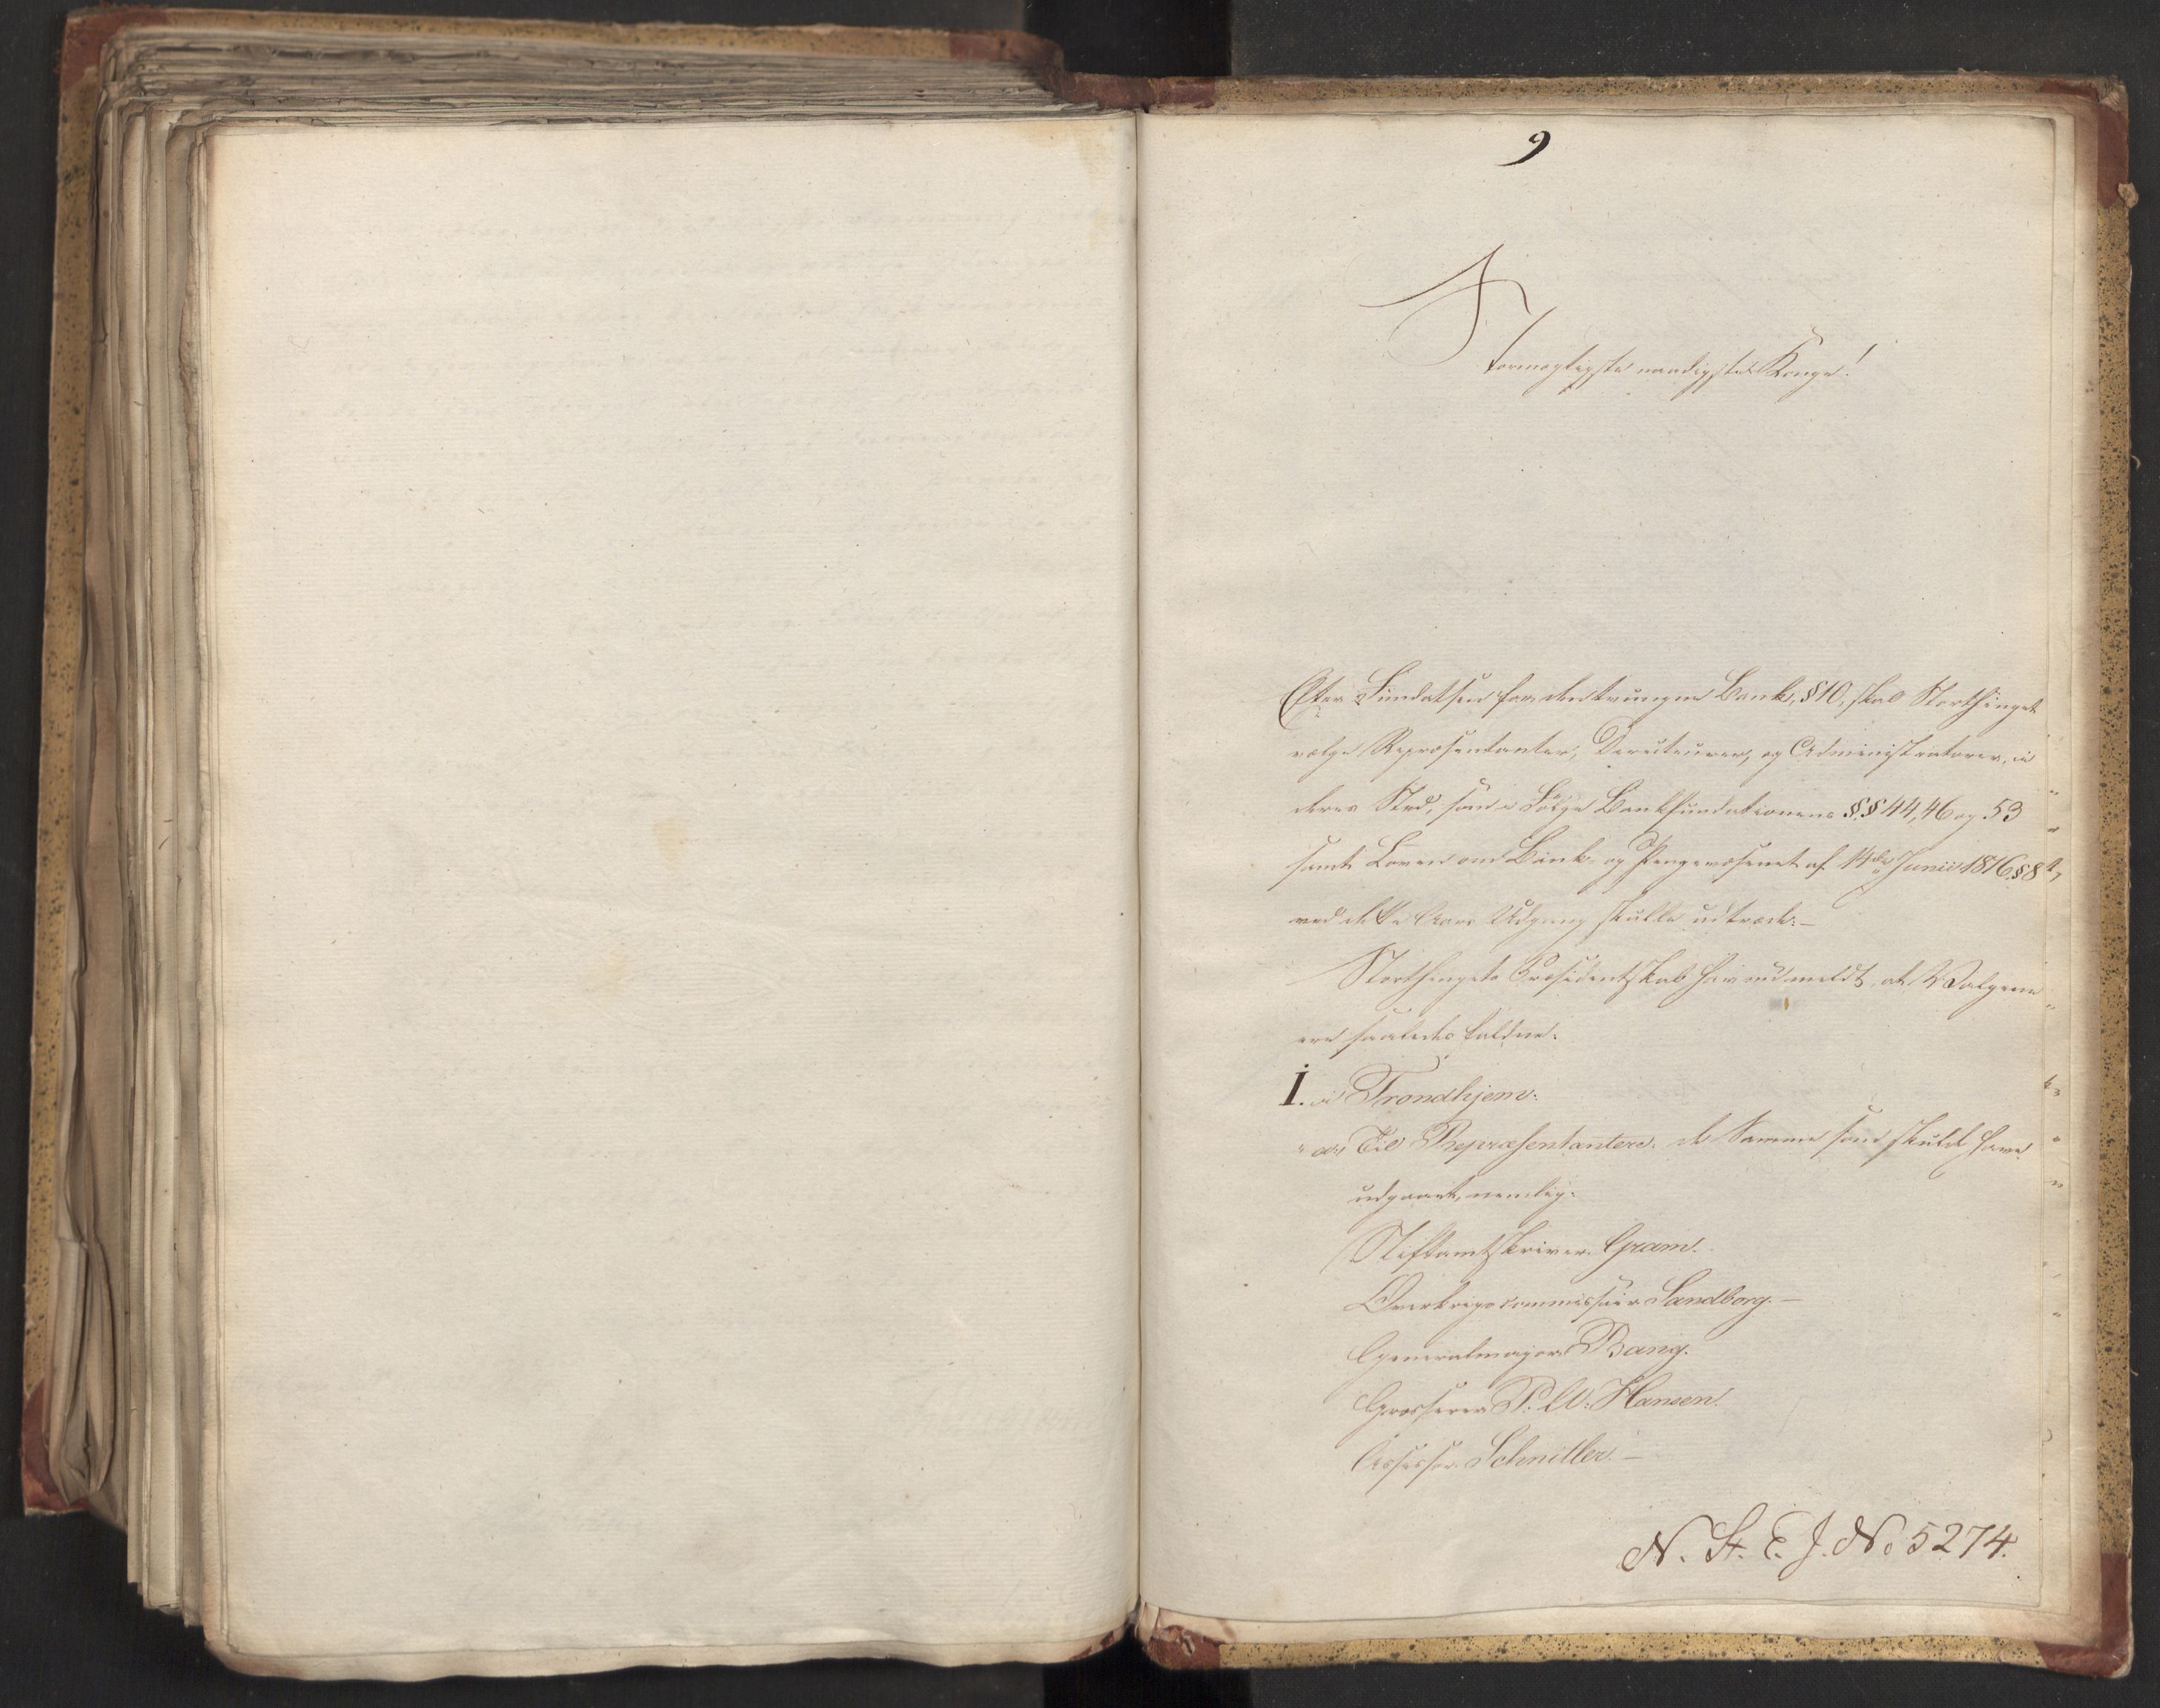 9
Stormægtigste naadigste Konge!
Efter Fundatsen for den tvungne Bank, §10, skal Storthinget
vælge Repræsentanter, Directeurer, og Administratorer, i
deres Sted, som i Følge Bankfundationens §.§ 44, 46 og 53
samt Loven om Bank- og Pengevæsenet af 14de Junii 1816, §8,
ved dette Aars Udgang skulle udtræde.-
Storthingets Præsidentskab har nu meldt, at Valgene
ere saaledes faldne:
I. i Trondhjem:
a, Til Repræsentantere. de Samme som skulde have
udgaaet, nemlig:
Stiftamtskriver Gram.
Overkrigscommissair Sandborg.-
Generalmajor Bang.
Grosserer P. W. Hansen.
Assessor Schnitler.-
N. St. E. J. No 5274.